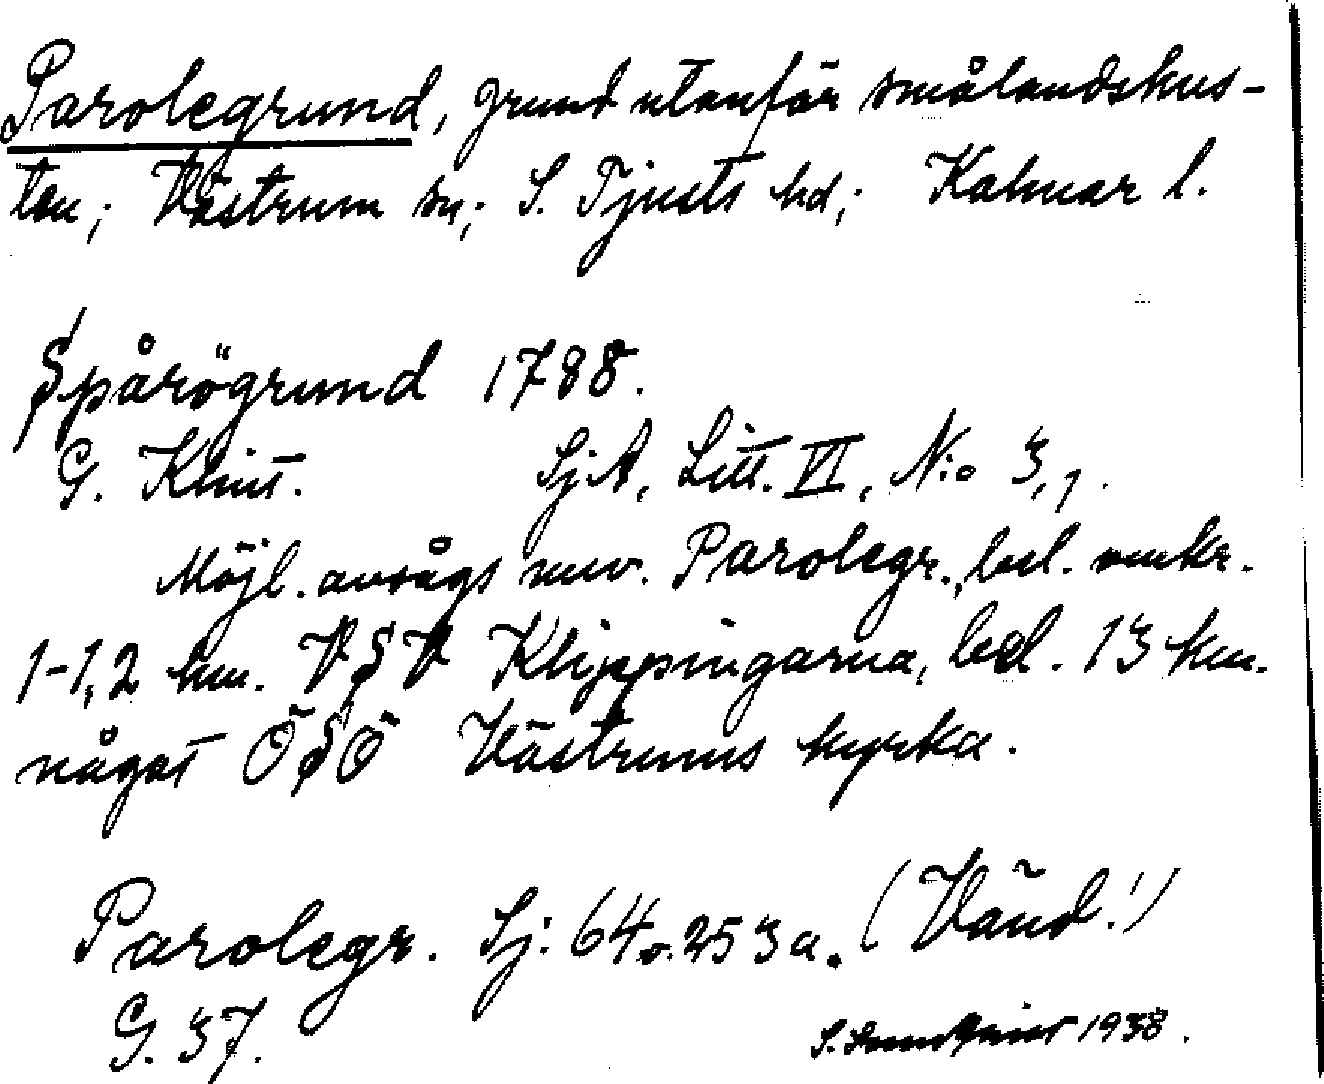 Parolegrund, grund utanför smålandskus-
ten; Västrum sn; S. Tjusts hd; Kalmar l.
Spårögrund 1788.
G. Klint. SjA, Litt. VI, N:o 3,1.
Möjl. avsågs nuv. Parolegr., bel. omkr.
1-1,2 km. VSV Klippingarna, bel. 13 km.
något ÖSÖ Västrums kyrka.
Parolegr. Sj: 64 o. 253 a. (Vänd!)
G. 37. 1938.